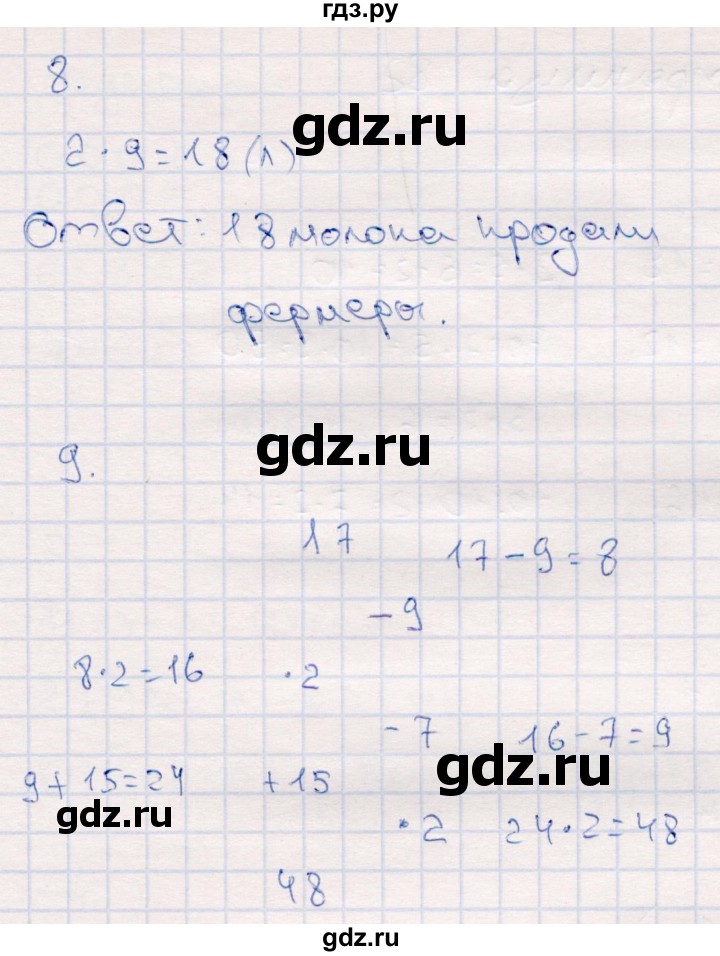 гдз.ру
8.
gdz.ru
2·9=18(л)
Ответ: 18 молока продали
фермеры.
9.
gdz.ru
17
17-9=8
-9
8·2=16
·2
-7
16-7=9
gdz.ru
9+15=24
+15
gdz.ru
·2
24·2=48
48
gdz.ru